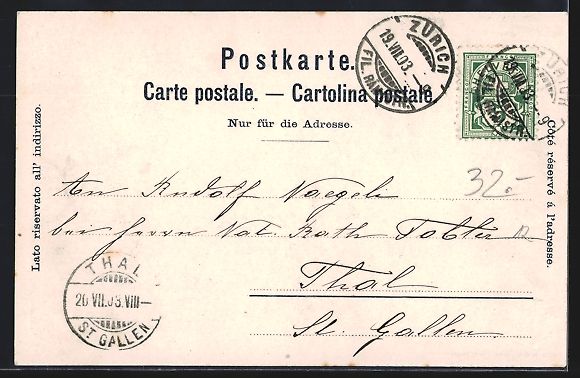 Postkarte.
Carte postale. — Cartolina postale
Nur für die Adresse.
ZÜRICH
19.VII.03.
Lato riservato all' indirizzo.
Côté réservé à l'adresse.
32.-
An Rudolf Naegeli
bei Herrn Nat. Rath Tobler
Thal
St. Gallen
THAL
20 VII.03.VIII—
ST GALLEN